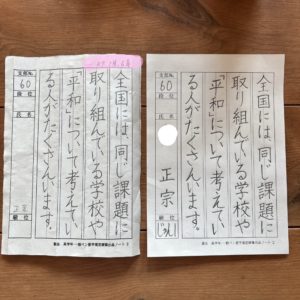 全国には、同じ課題に
取り組んでいる学校や
「平和」について考えてい
る人がたくさんいます。
支部No.
60
段位
氏名
順位
全国には、同じ課題に
取り組んでいる学校や
「平和」について考えてい
る人がたくさんいます。
支部No.
60
段位
氏名
正宗
順位